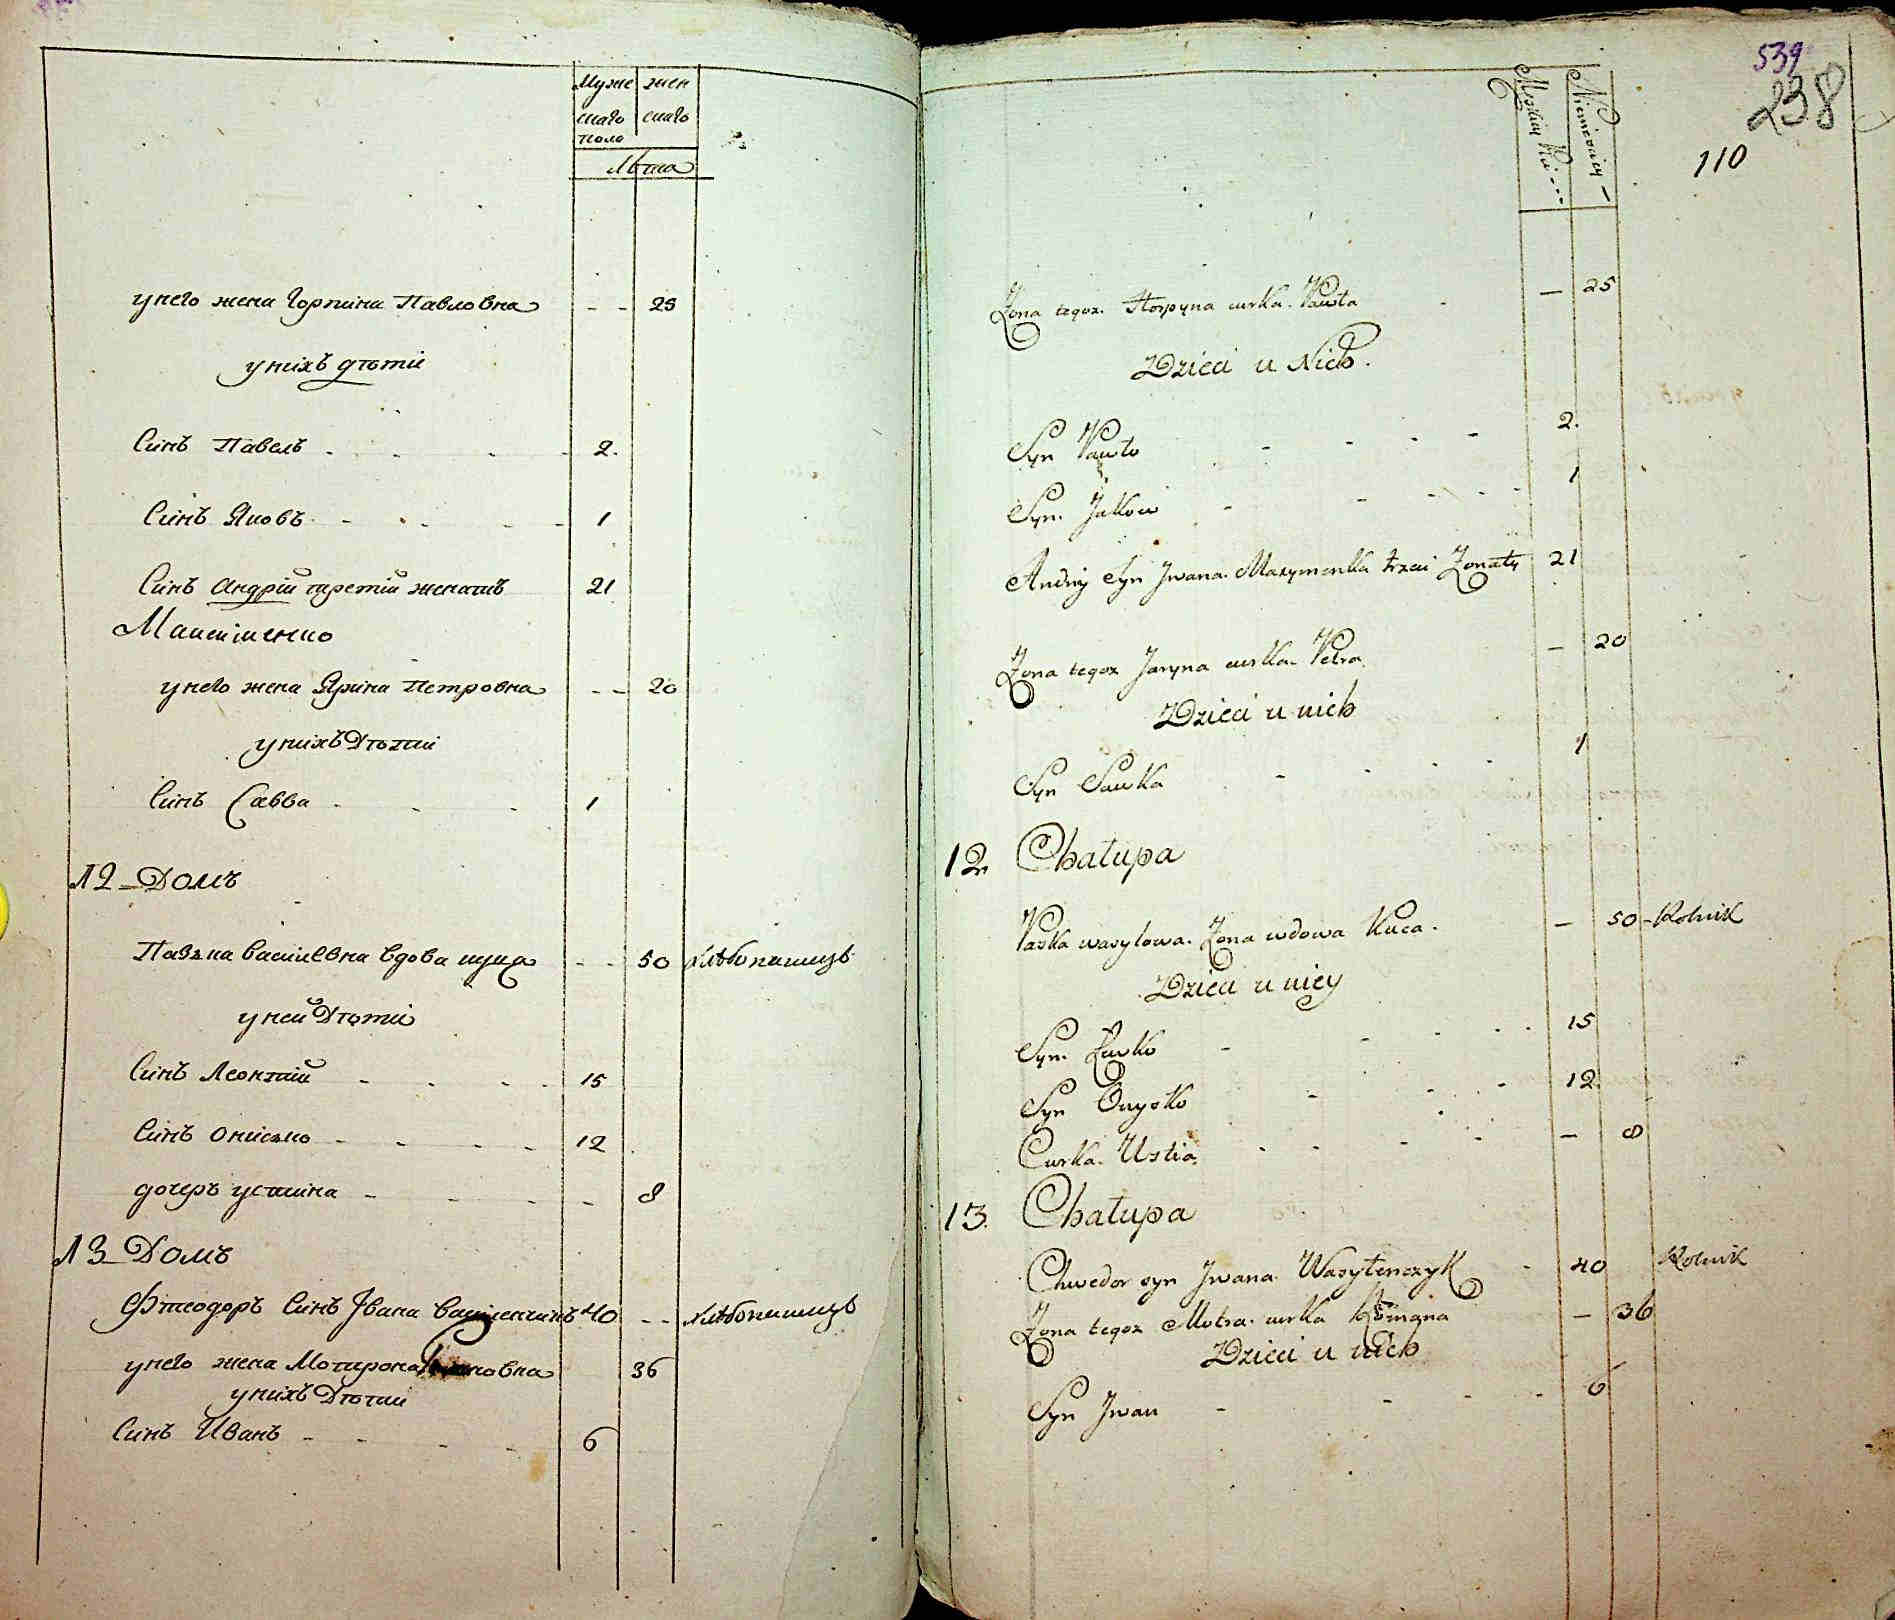 Муже жен
скаго скаго
поло
Лѣта
унего жена Горпина Павловна - - 25
унихъ дѣти
Синъ Павелъ 2.
Синъ Яковъ 1
Синъ Андрій третій женатъ 21
Максименко
унего жена Ярина Петровна - - 20
унихъ Дѣти
Синъ Савва 1
12 Домъ
Павзка Василевна вдова куца - - 50 хлѣбопашецъ
уней Дѣти
Синъ Леонтій 15
Синъ Онисько 12
дочеръ устина - 8
13 Домъ
Фтеодоръ Синъ Івана Василенчикъ 40 - - хлѣбопашецъ
унего жена Мотирона Романовна 36
унихъ Дѣти
Синъ Иванъ 6
539
238
110
Męzkiey Niewieściey
Żona tegoż Horpyna curka Pawła — 25
Dzieci u Nich.
Syn Pawło 2.
Syn Jakow 1
Andriy Syn Jwana Maxymenka trzeci Żonaty 21
Żona tegoż Jaryna curka Petra — 20
Dzieci u nich
Syn Sawka 1
12. Chałupa
Paska wasylowa Żona wdowa Kuca. — 50 - Rolnik
Dzieci u niey
Syn Lewko 15
Syn Onyśko 12.
Curka Ustia — 8
13. Chałupa
Chwedor syn Jwana Wasylenczyk 40 Rolnik
Żona tegoż Motra curka Romana — 36
Dzieci u nich
Syn Jwan 6